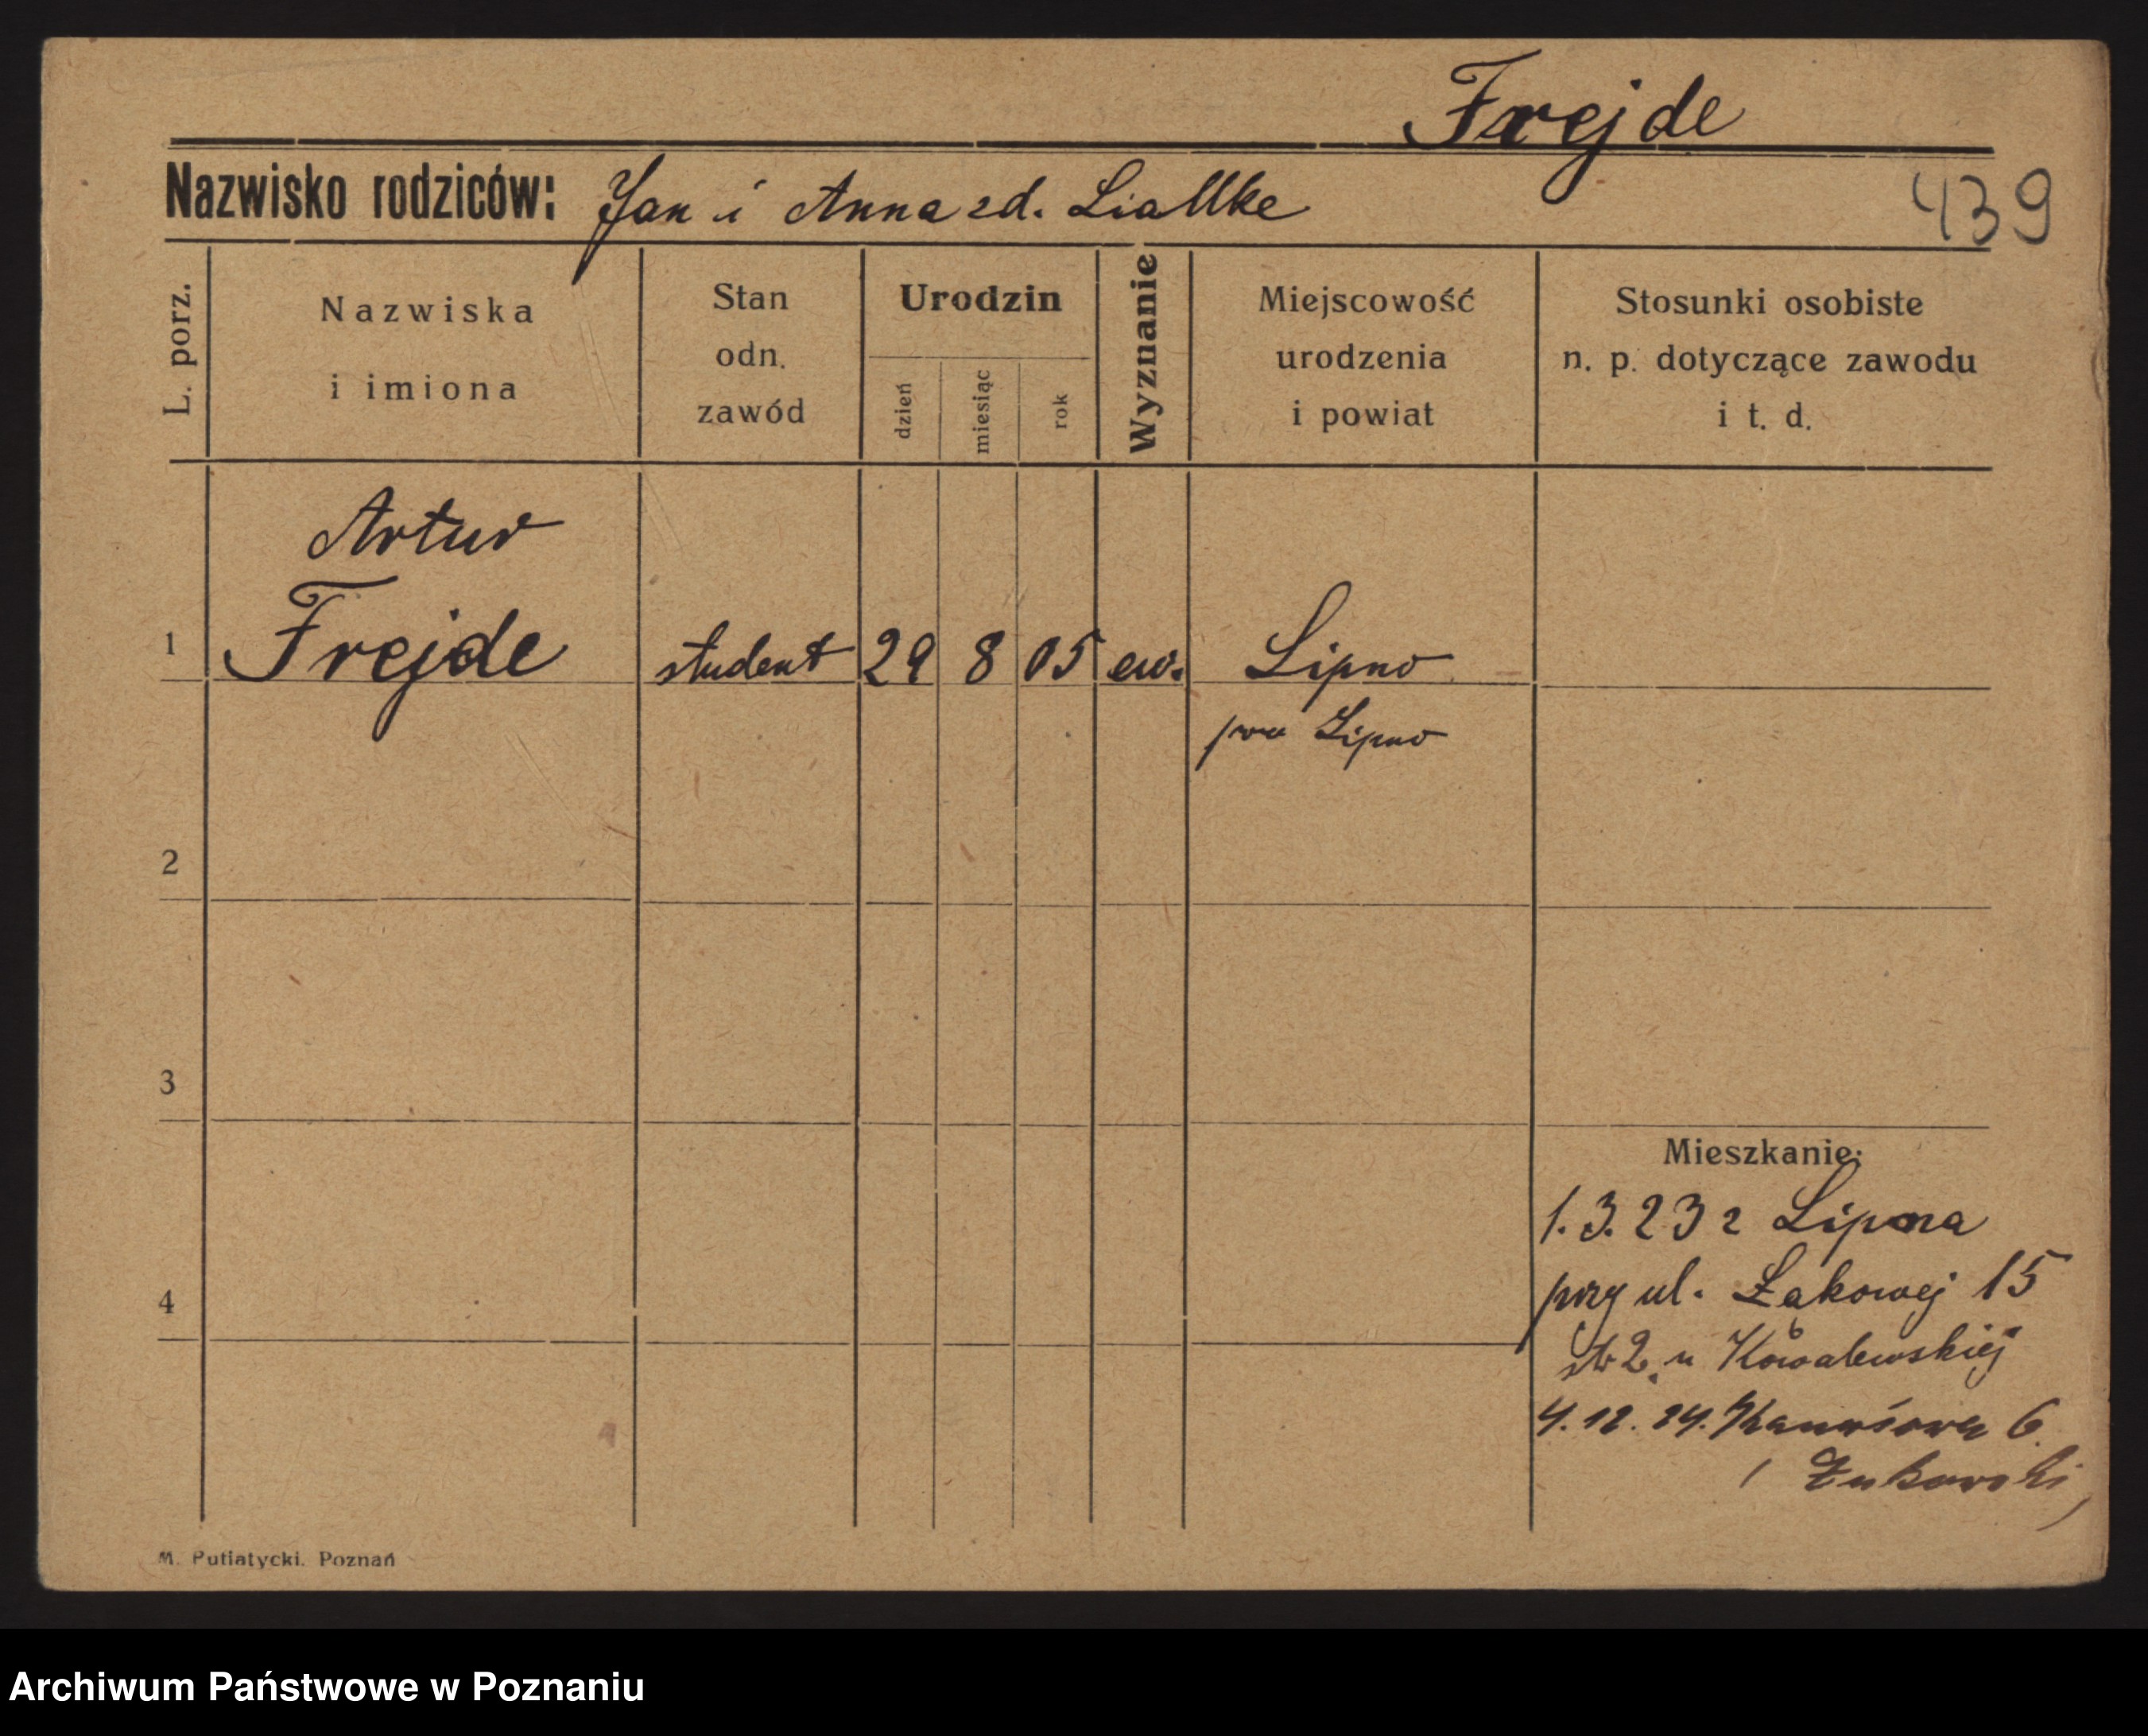 Frejde
Nazwisko rodziców: Jan i Anna zd.
439
L. porz.
Nazwiska
i imiona
Stan
odn.
zawód
Urodzin
dzień
miesiąc
rok
Wyznanie
Miejscowość
urodzenia
i powiat
Stosunki osobiste
n. p. dotyczące zawodu
i t. d.
Artur
1 Frejde student 29 8 05 ew. Lipno
pow Lipno
2
3
Mieszkanie:
1.3.23 z Lipna
4
przy ul. Łąkowej 15
u Kowalewskiej
4.12.24. 6
Żukowski
M. Putiatycki. Poznań
Archiwum Państwowe w Poznaniu